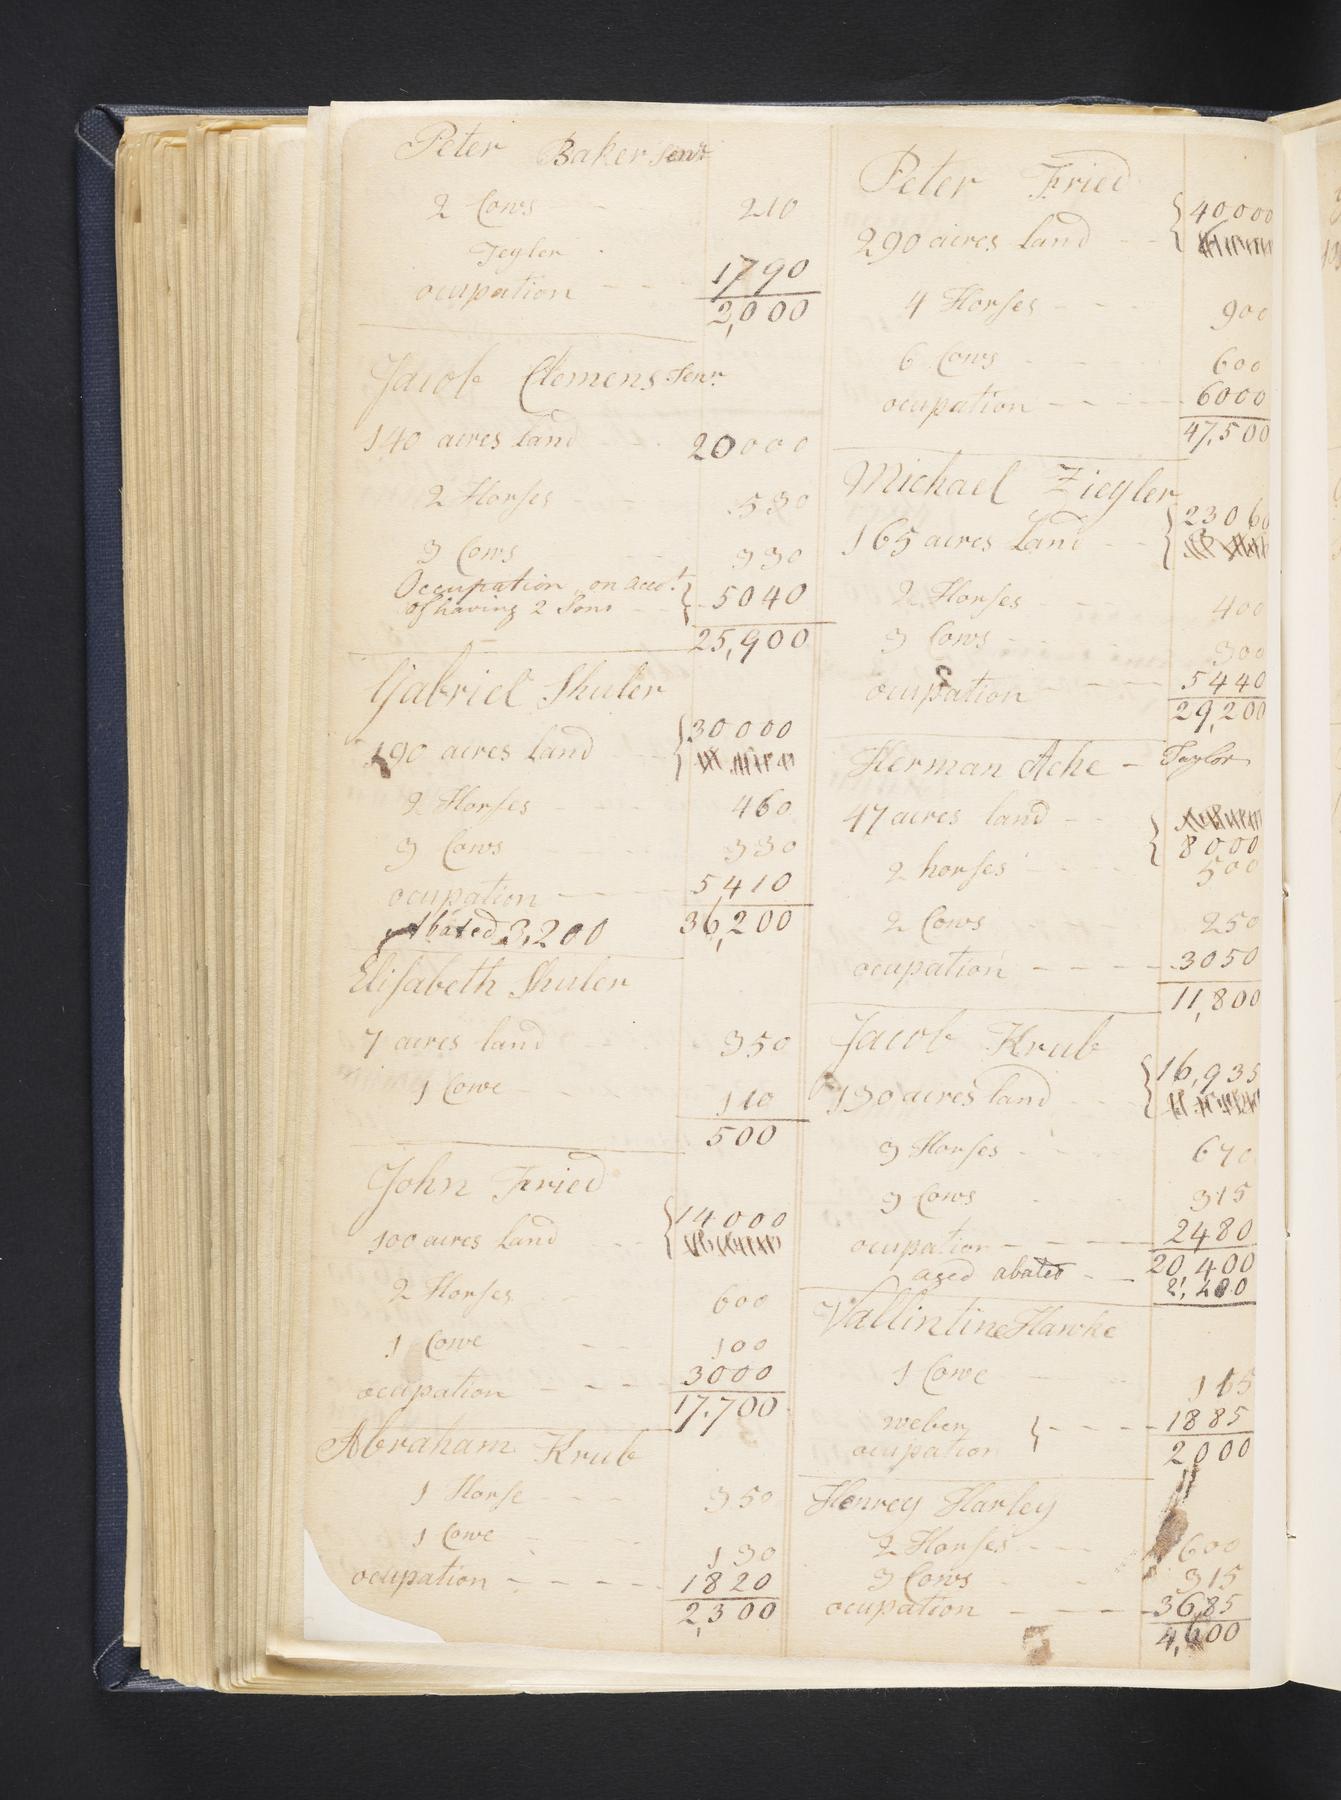 Peter Baker Senr
2 Cows 210
Teyler
ocupation 1790
2,000
Jacob Clemens Senr
140 acres land 20000
2 Horses 530
3 Cows 330
Occupation on acct.
of having 2 Sons 5040
25,900
Gabriel Shuler
190 acres land 30000
2 Horses 460
3 Cows 330
ocupation 5410
36,200
Abated 3,200
Elisabeth Shuler
7 acres land 350
1 Cowe 110
500
John Fried
100 acres land 14000
2 Horses 600
1 Cowe 100
ocupation 3000
17,700
Abraham Krub
1 Horse 350
1 Cowe 130
ocupation 1820
2,300
Peter Fried
290 acres land 40000
4 Horses 900
6 Cows 600
ocupation 6000
47,500
Michael Ziegler
165 acres land 23060
2 Horses 400
3 Cows 300
ocupation 5440
29,200
Herman Ache - Taylor
47 acres land
8000
2 horses 500
2 Cows 250
ocupation 3050
11,800
Jacob Krub
130 acres land 16,935
3 Horses 670
3 Cows 315
ocupation 2480
20,400
aged abated 2,480
Vallintine Hawke
1 Cowe 115
weber
ocupation 1885
2000
Henrey Harley
2 Horses 600
3 Cows 315
ocupation 3685
4,600